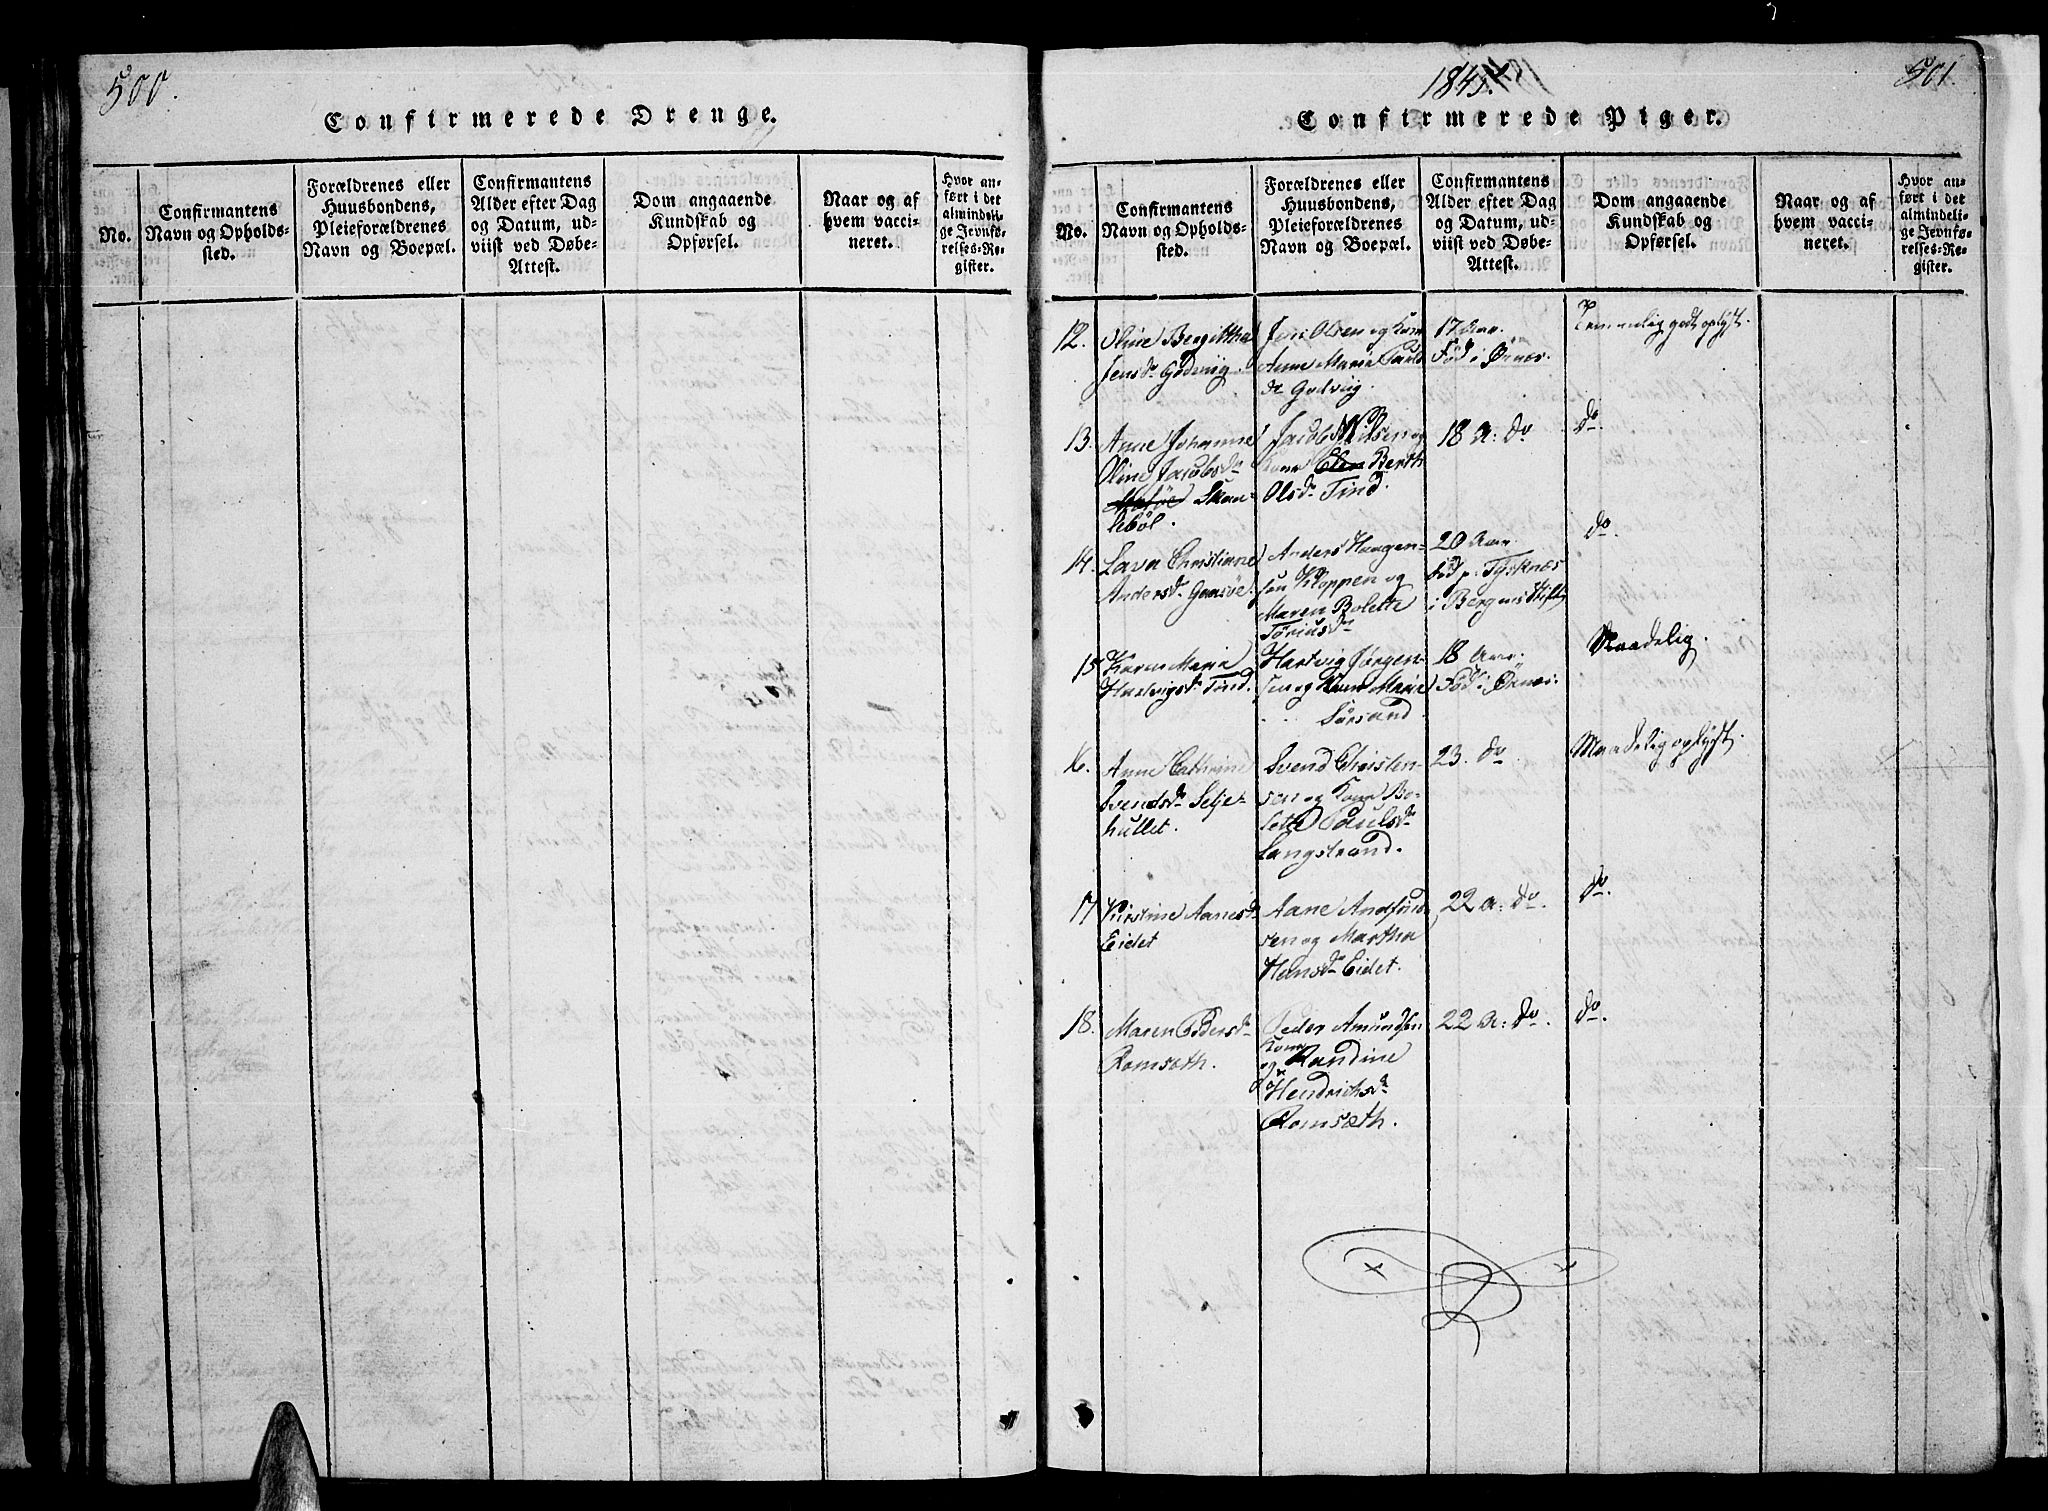 500.
Confirmerede Drenge.
No.
Confirmantens
Navn og Opholds-
sted.
Forældrenes eller
Huusbondens,
Pleieforældrenes
Navn og Boepæl.
Confirmantens
Alder efter Dag
og Datum, ud-
viist ved Døbe-
Attest.
Dom angaaende
Kundskab og
Opførsel.
Naar og af
hvem vacci-
neret.
Hvor an-
ført i det
almindeli-
ge Jevnfø-
relses-Re-
gister.
501.
Confirmerede Piger.
No.
Confirmantens
Navn og Opholds-
sted.
Forældrenes eller
Huusbondens,
Pleieforældrenes
Navn og Boepæl.
Confirmantens
Alder efter Dag
og Datum, ud-
viist ved Døbe-
Attest.
Dom angaaende
Kundskab og
Opførsel.
Naar og af
hvem vacci-
neret.
Hvor an-
ført i det
almindeli-
ge Jevnfø-
relses-Re-
gister.
12.
Oline Bergittha
Jensdr Godvig.
Jens Olsen og Kone
Anne Marie Pauls
dr Godvig.
17 Aar.
Fød i Ørnes.
Temmelig godt oplyst.
13.
Anne Johanne
Oline Jacobsdr
Skau-
lebøl.
Jacob Nilsen og
Kone Elen Berth
Olsdr Tind.
18 A: do
do.
14.
Lava Christianne
Andersdr Gaasøe.
Anders Haagen-
sen Kloppen og
Maren Bolette
Tøriusdr
20 Aar.
fød p. Tysknæs
i Bergens Stift
do.
15
Karen Maria
Hartvigsdr Tind.
Hartvig Jørgen-
sen og Kone Marie
Sørsand.
18 Aar.
Fød i Ørnes.
Maadelig.
16.
Anne Cathrine
Svendsdr Selje-
hullet.
Svend Christen-
sen og Kone Bo-
lette Paulsdr
Langstrand.
23. do
Maadelig oplyst.
17
Kirstine Aanesdr
Eidet
Aane Andfind-
sen og Martha
Hansdr Eidet.
22 A: do.
do.
18.
Maren Pedersdr
Romsæth.
Peder Amundsen
og Kone Randine
Hendrichsdr
Romsæth.
22 A: do.
do.